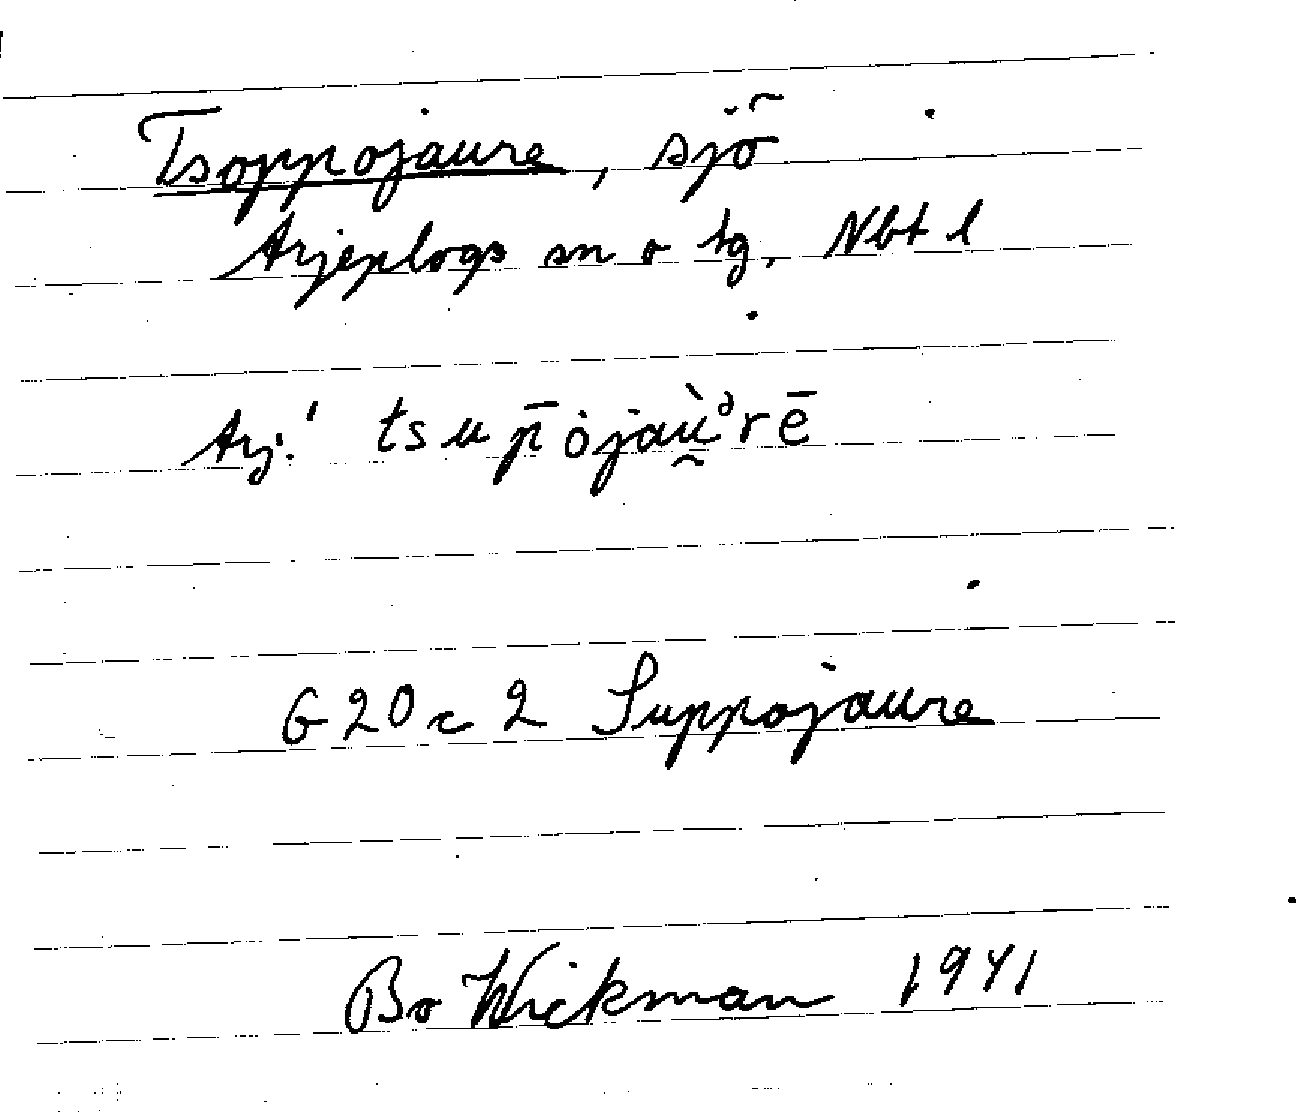 Tsoppojaure, sjö
Arjeplogs sn o tg. Nbt l
Arj: ' tsup̄ȯjaù̯ᵊrē
G 20 c 2 Suppojaure
Bo Wickman 1941